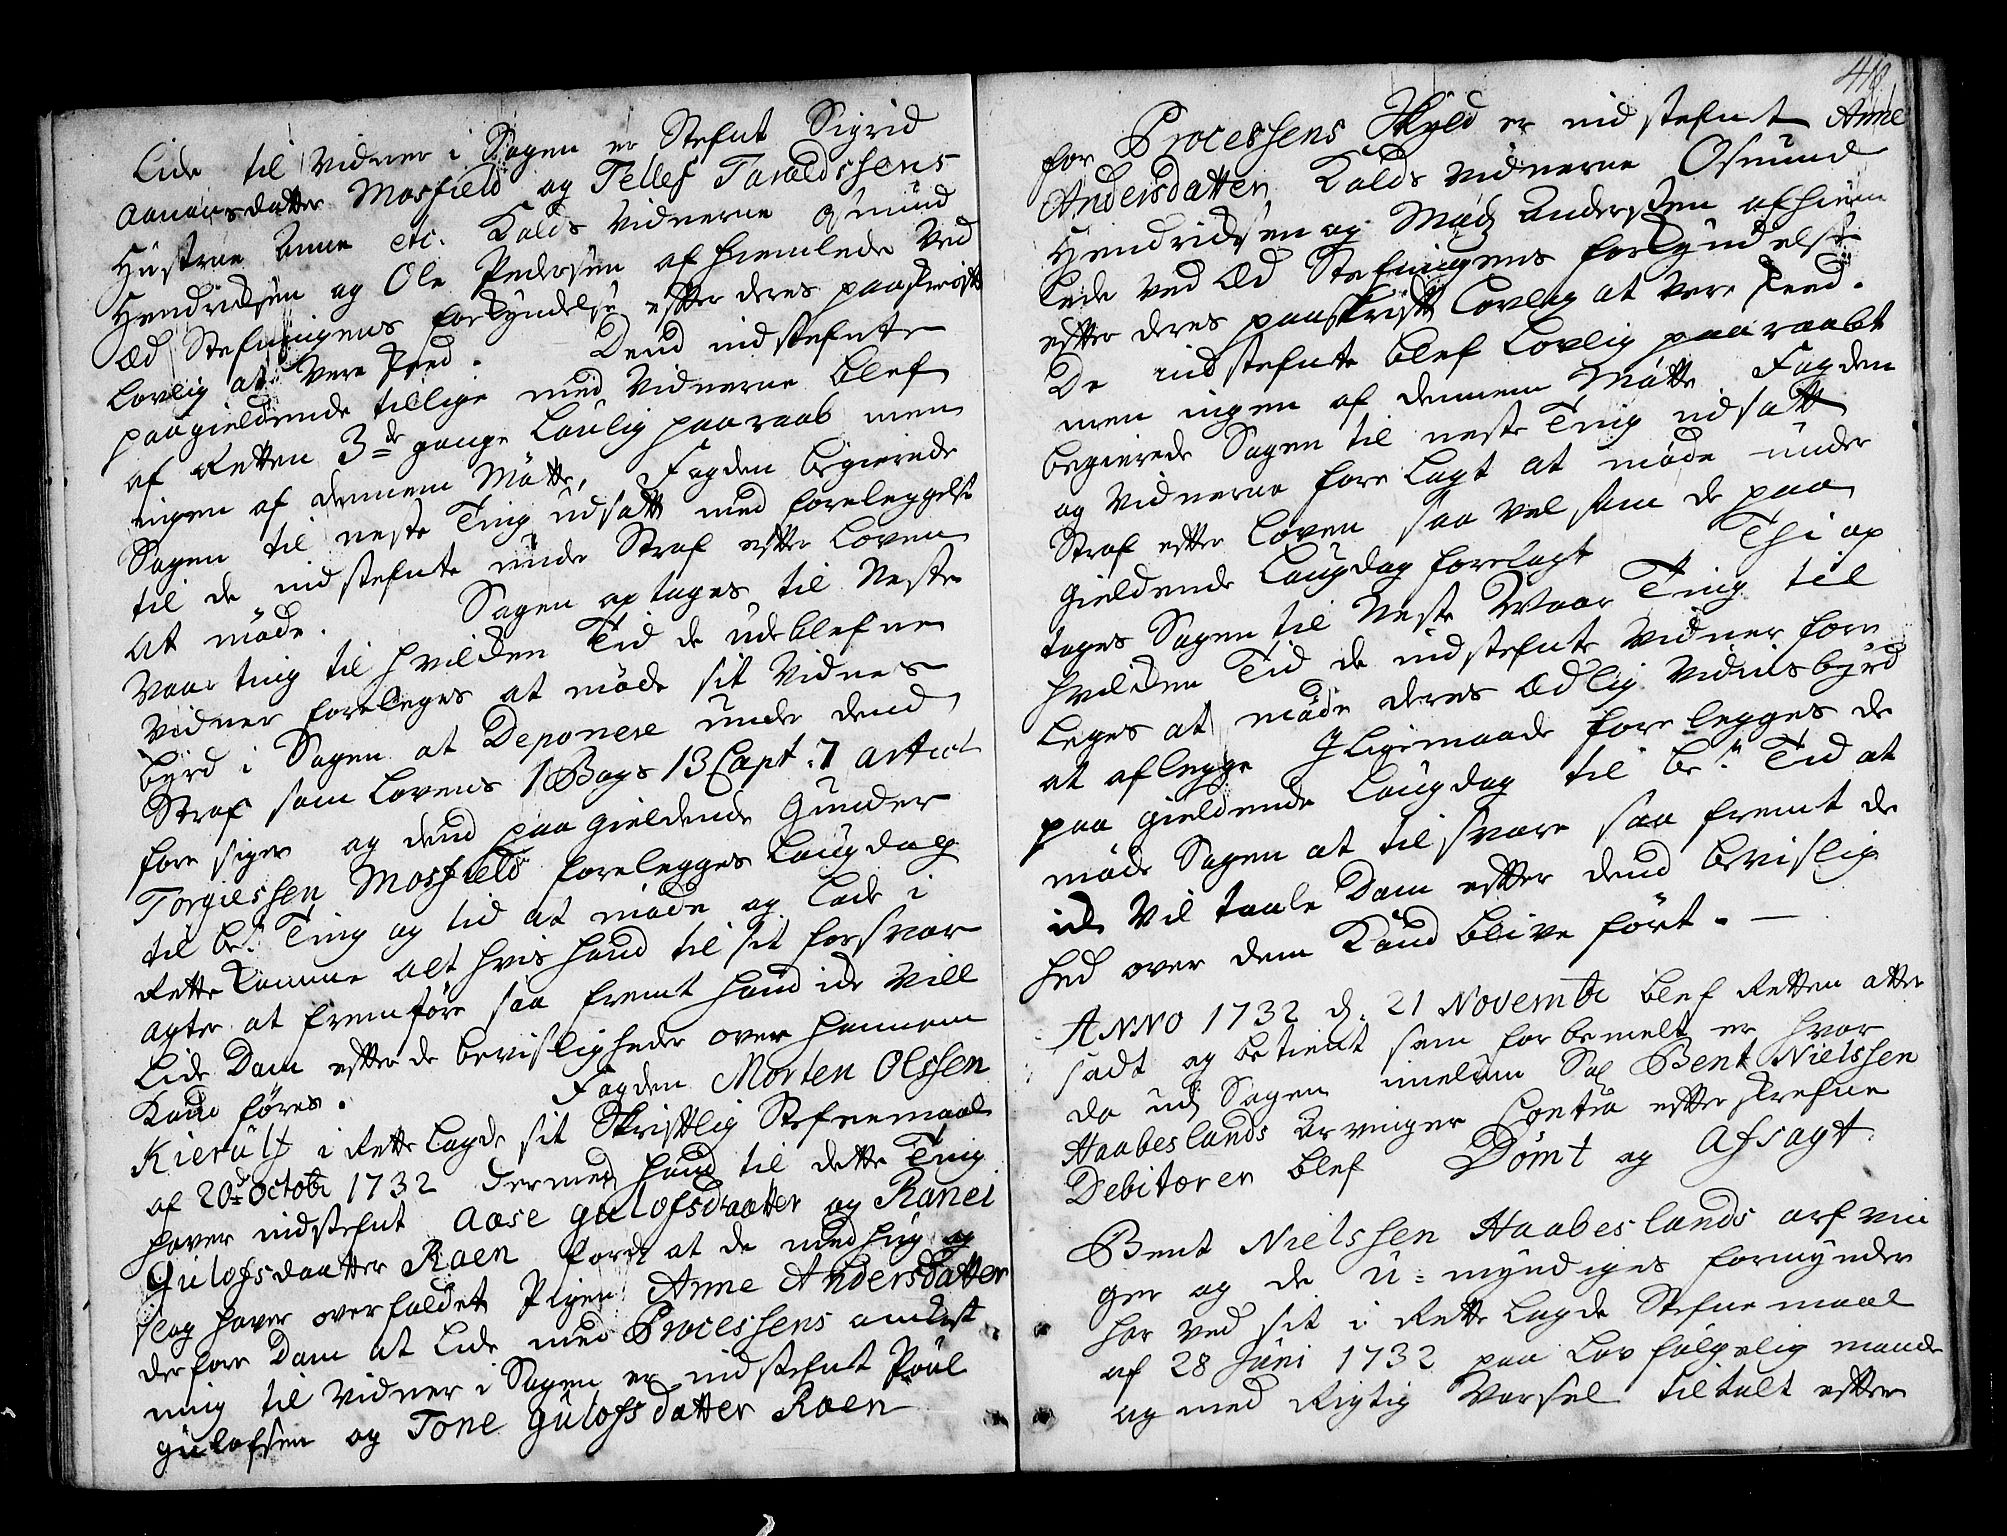 Lide til Vidner i Sagen er Stefnt Sigrid
Aanonsdatter Mosfield og Tellef Taraldssens
Hustrue Anne etc. Kalds Vidnerne Osmund
Hendricksen og Ole Pedersen afhiemlede Ved
Æd Stefningens forkyndelse efter deres paaskrift
Lovlig at Vere skeed. Dend indstefnte
paagieldende tillige med Vidnerne blef
af Retten 3de gange Laulig paaraab men
ingen af dennem Mötte, Fogden begierede
Sagen til neste Ting udsatt med foreleggelse
til de indstefnte under Straf efter Loven
at möde. Sagen optages til Neste
Vaar ting til hvilcken Tid de udeblefne
Vidner foreleges at möde sit Vidnes
byrd i Sagen at Deponere under dend
Straf som Lovens 1 Bogs 13 Capt: 7 articl
fore siger og dend paagieldende Gunder
Torgiessen Mosfield forelegges Laugdag
til bete Ting og tid at möde og Lade i
Rette komme alt hvis hand til sit forsvar
agter at fremföre saa fremt hand icke Vill
Lide Dom efter de bevisligheder over hannem
Kand föres. Fogden Morten Olssen
Kierulf i Rette Lagde sit Skriftlig Stefnemaal
af 20de Octobr 1732 dermed hand til dette Ting
haver indstefnt Aase Gulofsdaatter og Ranei
Gulofsdaatter Roen fordi at de med hug og
slag haver overfaldet Pigen Anne Andersdatter
derfore Dom at Lide med Processens omkost
ning til Vidner i Sagen er indstefnt Poul
Gulofsen og Tone Gulofsdatter Roen
for Processens Skyld er indstefnt Anne
Andersdatter Kalds Vidnerne Osmund
Hendricksen og Madz Anderssen afhiem
lede ved Æd Stefningens forkyndelse
efter deres paaskrift Lovlig at Vere skeed.
De indstefnte blef Lovlig paaraabt
men ingen af dennem Mötte. Fogden
begierede Sagen til neste Ting udsatt
og Vidnerne fore Lagt at möde under
Straf efter Loven saa vel som de paa
gieldende Laugdag forelagt Thi op
tages Sagen til Neste Waar Ting til
hvilcken Tid de indstefnte Vidner fore
leges at möde deres Ædlig Vidnisbyrd
at aflegge I ligemaade fore legges de
paa gieldende Laugdag til bete Tid at
möde Sagen at tilsvare saa fremt de
icke Vil taale Dom efter dend bevislig
hed over dem Kand blive fört. —
ANNO 1732 d. 21 Novembr blef Retten atter
sadt og betient som forbemelt er hvor
da udj Sagen imellem Sal Bent Nielssen
Haabeslands Arvinger Contra efterskrefne
Debitorer blef Dömt og Afsagt.
Bent Nielssen Haabeslands arfvin
ger og de u=myndiges formynder
har ved sit i Rette Lagde Stefnemaal
af 28 Juni 1732 paa Lov fölgelig maade
og med Rigtig Varsel tiltalt efter